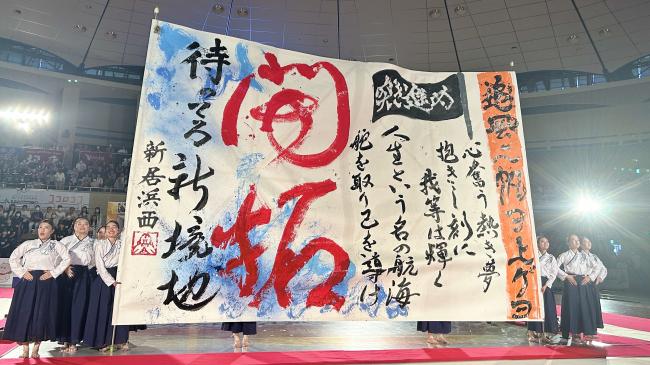 追風ニ帆ヲ上ゲヨ
心奮う熱き夢
抱きし刻に
我等は輝く
人生という名の航海
舵を取り己を導け
開拓
待ってろ新境地
新居浜西